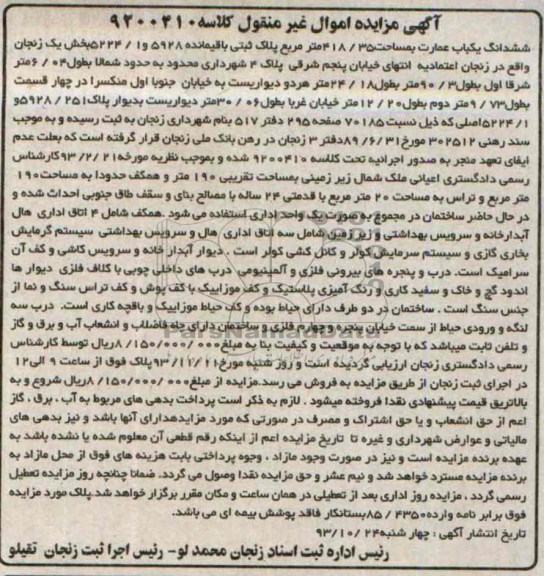 آگهی مزایده اموال غیر منقول کلاسه ۹۲۰۰۴۱۰
ششدانگ یکباب عمارت بمساحت ۴۱۸/۳۵ متر مربع پلاک ثبتی باقیمانده ۵۹۲۸ و ۵۲۲۴/۱ بخش یک زنجان
واقع در زنجان اعتمادیه انتهای خیابان پنجم شرقی پلاک ۴ شهرداری محدود به حدود شمالا بطول ۶/۰۴ متر
شرقا اول بطول ۹۰/۳ متر بطول ۲۴/۱۸ متر هردو دیواریست به خیابان جنوبا اول منکسرا در چهار قسمت
بطول ۹/۷۳ متر دوم بطول ۱۲/۲۰ متر خیابان غربا بطول ۳۰/۰۶ متر دیواریست بدیوار پلاک ۵۹۲۸/۲۵۱ و
۵۲۲۴/۱ اصلی که ذیل نسبت ۷۰۱۸۵ صفحه ۲۹۵ دفتر ۵۱۷ بنام شهرداری زنجان به ثبت رسیده و به موجب
سند رهنی ۳۰۲۵۱۲ مورخ ۸۹/۶/۳۱ دفتر ۳ زنجان در رهن بانک ملی زنجان قرار گرفته است که بعلت عدم
ایفای تعهد منجر به صدور اجرائیه تحت کلاسه ۹۲۰۰۴۱۰ شده و بموجب نظریه مورخه ۹۳/۲/۲۱ کارشناس
رسمی دادگستری اعیانی ملک شمال زیر زمینی بمساحت تقریبی ۱۹۰ متر و همکف حدودا به مساحت ۱۹۰
متر مربع و تراس به مساحت ۲۰ متر مربع با قدمتی ۲۴ ساله با مصالح بنای و سقف طاق جنوبی احداث شده و
در حال حاضر ساختمان در مجموع به صورت یک واحد اداری استفاده می شود. همکف شامل ۴ اتاق اداری هال
آبدارخانه و سرویس بهداشتی و زیر زمین شامل سه اتاق اداری هال و سرویس بهداشتی سیستم گرمایش
بخاری گازی و سیستم سرمایش کولر و کانل کشی کولر است. دیوار آبدار خانه و سرویس کاشی و کف آن
سرامیک است. درب و پنجره های بیرونی فلزی و آلمینیومی درب های داخلی چوبی با کلاف فلزی دیوار ها
اندود گچ و خاک و سفید کاری و رنگ آمیزی پلاستیک و کف موزاییک با کف پوش و کف تراس سنگ و نما از
جنس سنگ است. ساختمان در دو طرف دارای حیاط بوده و کف حیاط موزاییک و باقچه کاری است. درب سه
لنگه و ورودی حیاط از سمت خیابان پنجم و چهارم فلزی و ساختمان دارای چاه فاضلاب و انشعاب آب و برق و گاز
و تلفن ثابت میباشد که با توجه به موقعیت و کیفیت بنا به مبلغ ۸/۱۵۰/۰۰۰/۰۰۰ ریال توسط کارشناس
رسمی دادگستری زنجان ارزیابی گردیده است و روز شنبه مورخ ۹۳/۱۱/۲۱ پلاک فوق از ساعت ۹ الی ۱۲
در اجرای ثبت زنجان از طریق مزایده به فروش می رسد. مزایده از مبلغ ۸/۱۵۰/۰۰۰/۰۰۰ ریال شروع و به
بالاترین قیمت پیشنهادی نقدا فروخته میشود. لازم به ذکر است پرداخت بدهی های مربوط به آب، برق، گاز
اعم از حق انشعاب و یا حق اشتراک و مصرف در صورتی که مورد مزایده دارای آنها باشد و نیز بدهی های
مالیاتی و عوارض شهرداری و غیره تا تاریخ مزایده اعم از اینکه رقم قطعی آن معلوم شده یا نشده باشد به
عهده برنده مزایده است و نیز در صورت وجود مازاد، وجوه پرداختی بابت هزینه های فوق از محل مازاد به
برنده مزایده مسترد خواهد شد و نیم عشر و حق مزایده نقدا وصول می گردد. ضمنا چنانچه روز مزایده تعطیل
رسمی گردد، مزایده روز اداری بعد از تعطیلی در همان ساعت و مکان مقرر برگزار خواهد شد. پلاک مورد مزایده
فوق برابر نامه وارده ۸۵/۰۴۳۵۰ بستانکار فاقد پوشش بیمه ای می باشد.
تاریخ انتشار آگهی: چهار شنبه ۹۳/۱۰/۲۴
رئیس اداره ثبت اسناد زنجان محمد لو- رئیس اجرا ثبت زنجان تقیلو